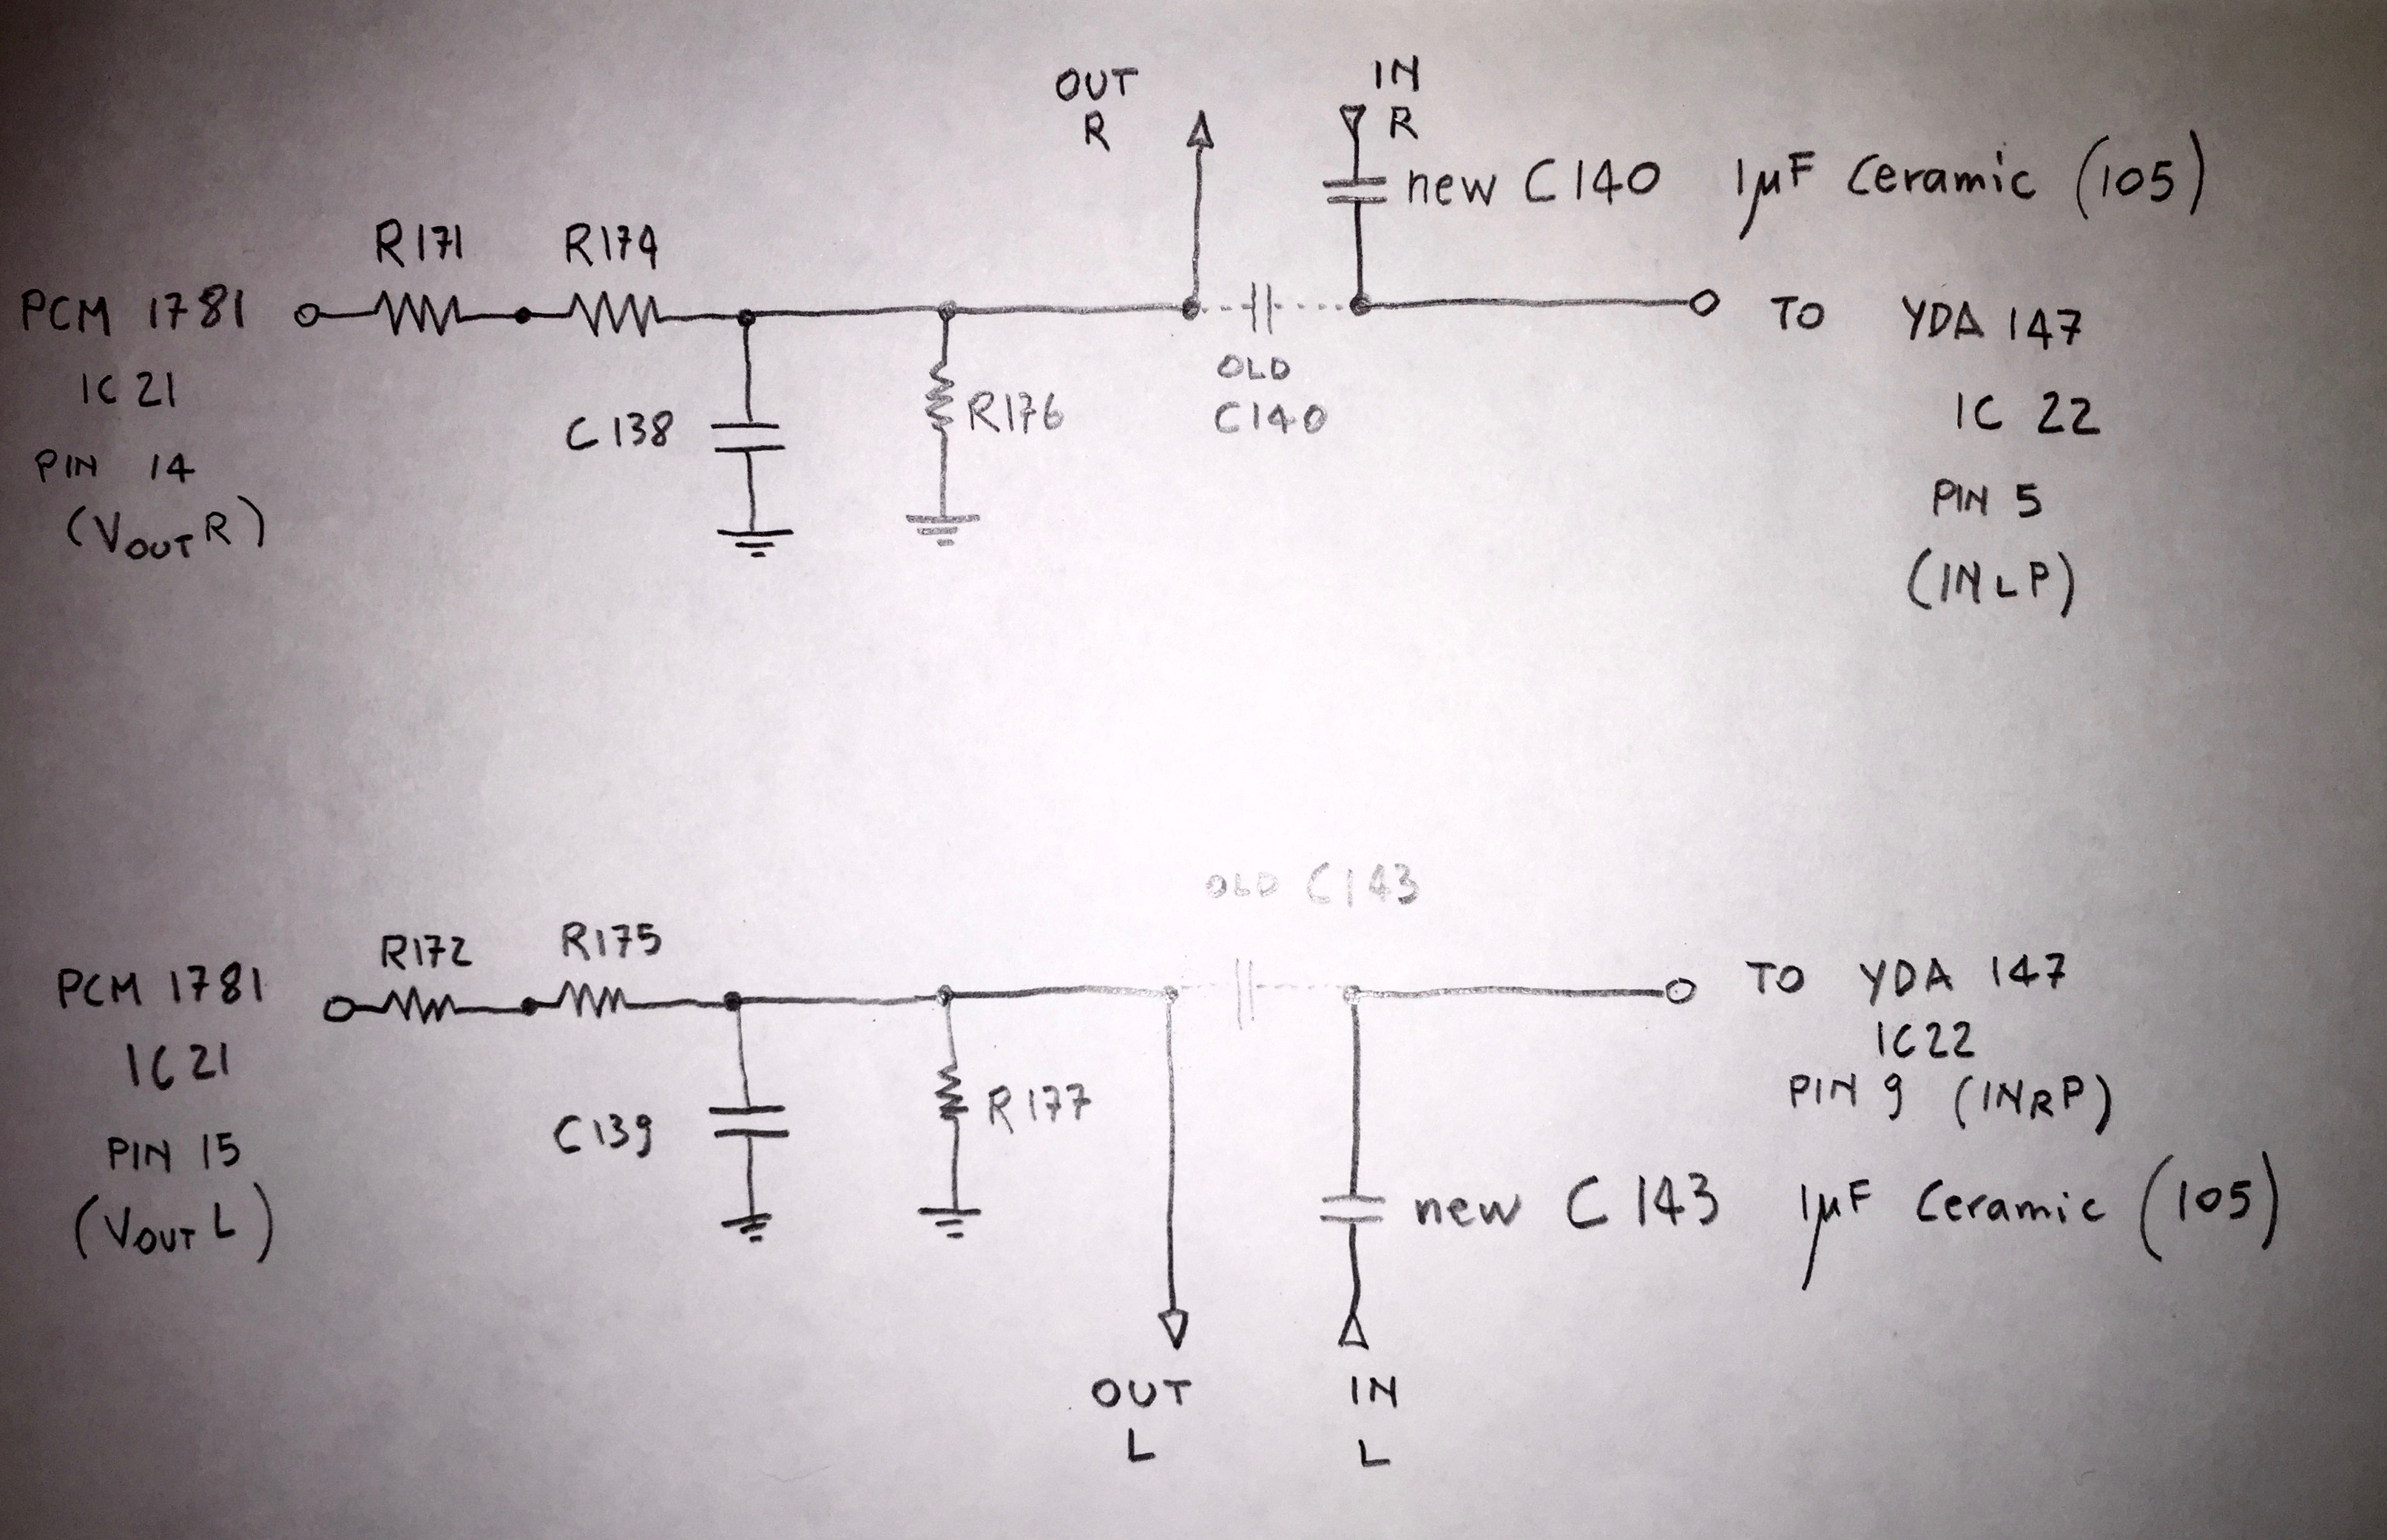 OUT
R
IN
R
new C140 1µF Ceramic (105)
R171
R174
PCM 1781
IC 21
PIN 14
(VOUT R)
C138
R176
OLD
C140
TO YDA 147
IC 22
PIN 5
(INLP)
OLD C143
R172
R175
PCM 1781
IC 21
PIN 15
(VOUT L)
C139
R177
TO YDA 147
IC22
PIN 9 (INRP)
new C 143 1µF Ceramic (105)
OUT
L
IN
L